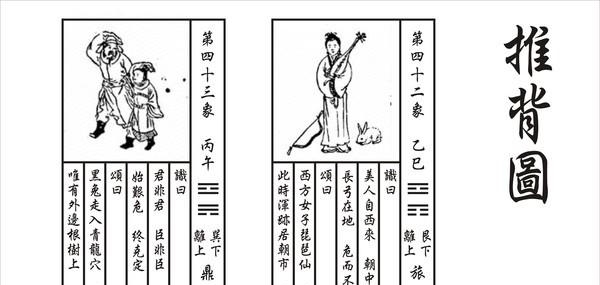 推背圖
第四十二象 乙巳
艮下
離上
旅
讖曰
美人自西來 朝中
長弓在地 危而不
頌曰
西方女子琵琶仙
此時渾跡居朝市
第四十三象 丙午
巽下
離上
鼎
讖曰
君非君 臣非臣
始艱危 終克定
頌曰
黑兔走入青龍穴
唯有外邊根樹上